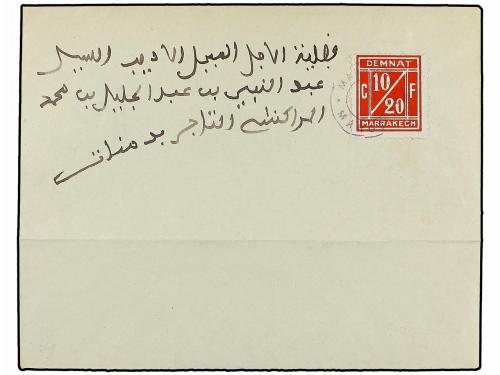 فضيلة الاجل المبجل الاديب
عبد النبي بن عبد الجليل بن محمد
المراكشي التاجر بدمنات
DEMNAT
10
C F
20
MARRAKECH